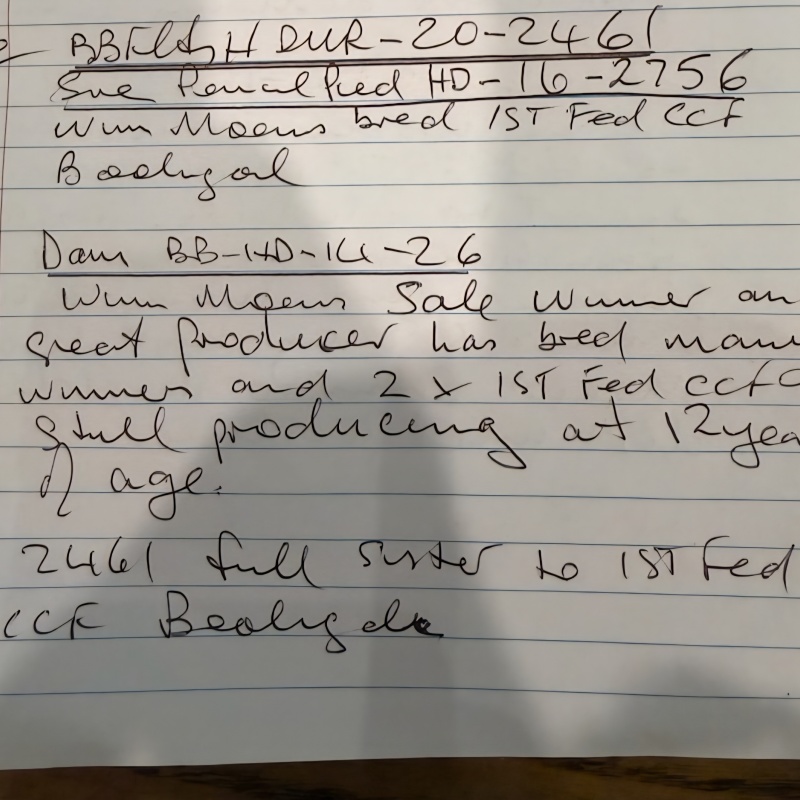 H DUR-20-2461
HD-16-2756
Wim Moens bred 1ST Fed CCF

Dam BB-HD-14-26
Wim Moens Sale winner an
great producer has bred man
winners and 2 x 1ST Fed CCF
still producing at 12 yea
of age.
2461 full sister to 1ST Fed
CCF